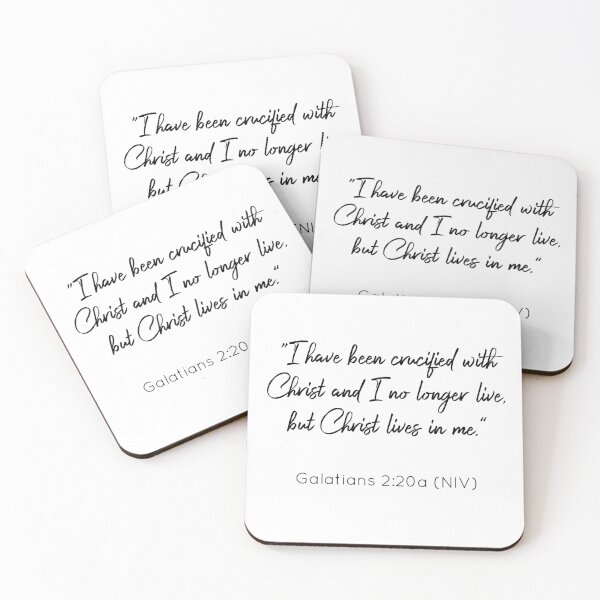 "I have been crucified with
Christ and I no longer
but
in me
"I have been crucified with
Christ and I no longer live,
but Christ lives in me."
"I have been crucified with
Christ and I no longer live,
but Christ lives in me."
Galatians 2:20
"I have been crucified with
Christ and I no longer live,
but Christ lives in me."
Galatians 2:20a (NIV)